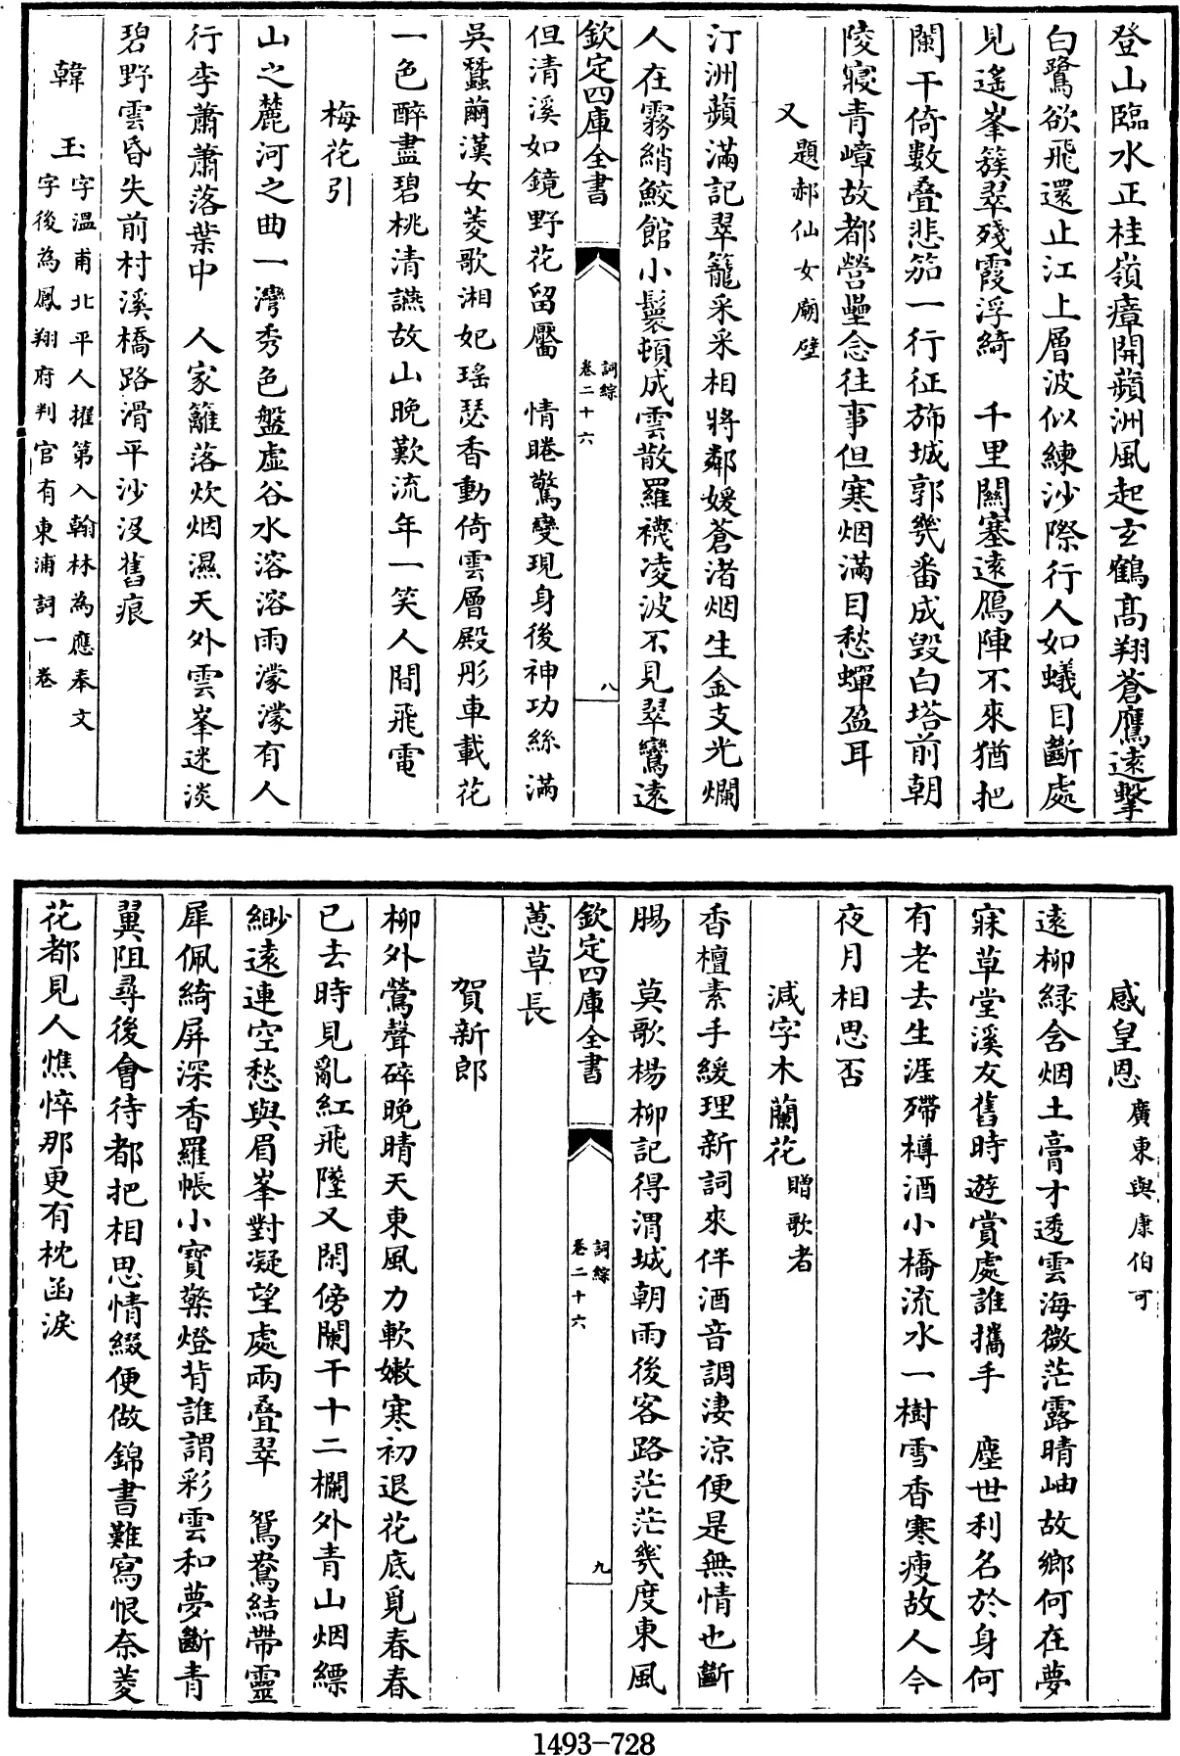 登山臨水正桂嶺瘴開蘋洲風起玄鶴高翔蒼鷹遠擊
白鷺欲飛還止江上層波似練沙際行人如蟻目斷處
見遙峯簇翠殘霞浮綺　千里關塞遠鴈陣不來猶把
闌干倚數叠悲笳一行征斾城郭幾番成毀白塔前朝
陵寢青嶂故都營壘念往事但寒烟滿目愁蟬盈耳
又題郝仙女廟壁
汀洲蘋滿記翠籠采采相將鄰媛蒼渚烟生金支光爛
人在霧綃鮫館小鬟頓成雲散羅襪凌波不見翠鸞遠
欽定四庫全書
詞綜
卷二十六
八
但清溪如鏡野花留靨　情睠驚變現身後神功絲滿
吳蠶繭漢女菱歌湘妃瑤瑟香動倚雲層殿彤車載花
一色醉盡碧桃清讌故山晚歎流年一笑人間飛電
梅花引
山之麓河之曲一灣秀色盤虛谷水溶溶雨濛濛有人
行李蕭蕭落葉中　人家籬落炊烟濕天外雲峯迷淡
碧野雲昏失前村溪橋路滑平沙沒舊痕
韓玉
字溫甫北平人擢第入翰林為應奉文
字後為鳳翔府判官有東浦詞一卷
感皇恩廣東與康伯可
遠柳緑含烟土膏才透雲海微茫露晴岫故鄉何在夢
寐草堂溪友舊時遊賞處誰攜手　塵世利名於身何
有老去生涯殢樽酒小橋流水一樹雪香寒瘦故人今
夜月相思否
減字木蘭花贈歌者
香檀素手緩理新詞來伴酒音調淒涼便是無情也斷
腸　莫歌楊柳記得渭城朝雨後客路茫茫幾度東風
欽定四庫全書
詞綜
卷二十六
九
蕙草長
賀新郎
柳外鶯聲碎晚晴天東風力軟嫩寒初退花底覓春春
已去時見亂紅飛墜又閑傍闌干十二欄外青山烟縹
緲遠連空愁與眉峯對凝望處兩叠翠　鴛鴦結帶靈
犀佩綺屏深香羅帳小寶檠燈背誰謂彩雲和夢斷青
翼阻尋後會待都把相思情綴便做錦書難寫恨奈菱
花都見人憔悴那更有枕函淚
1493-728